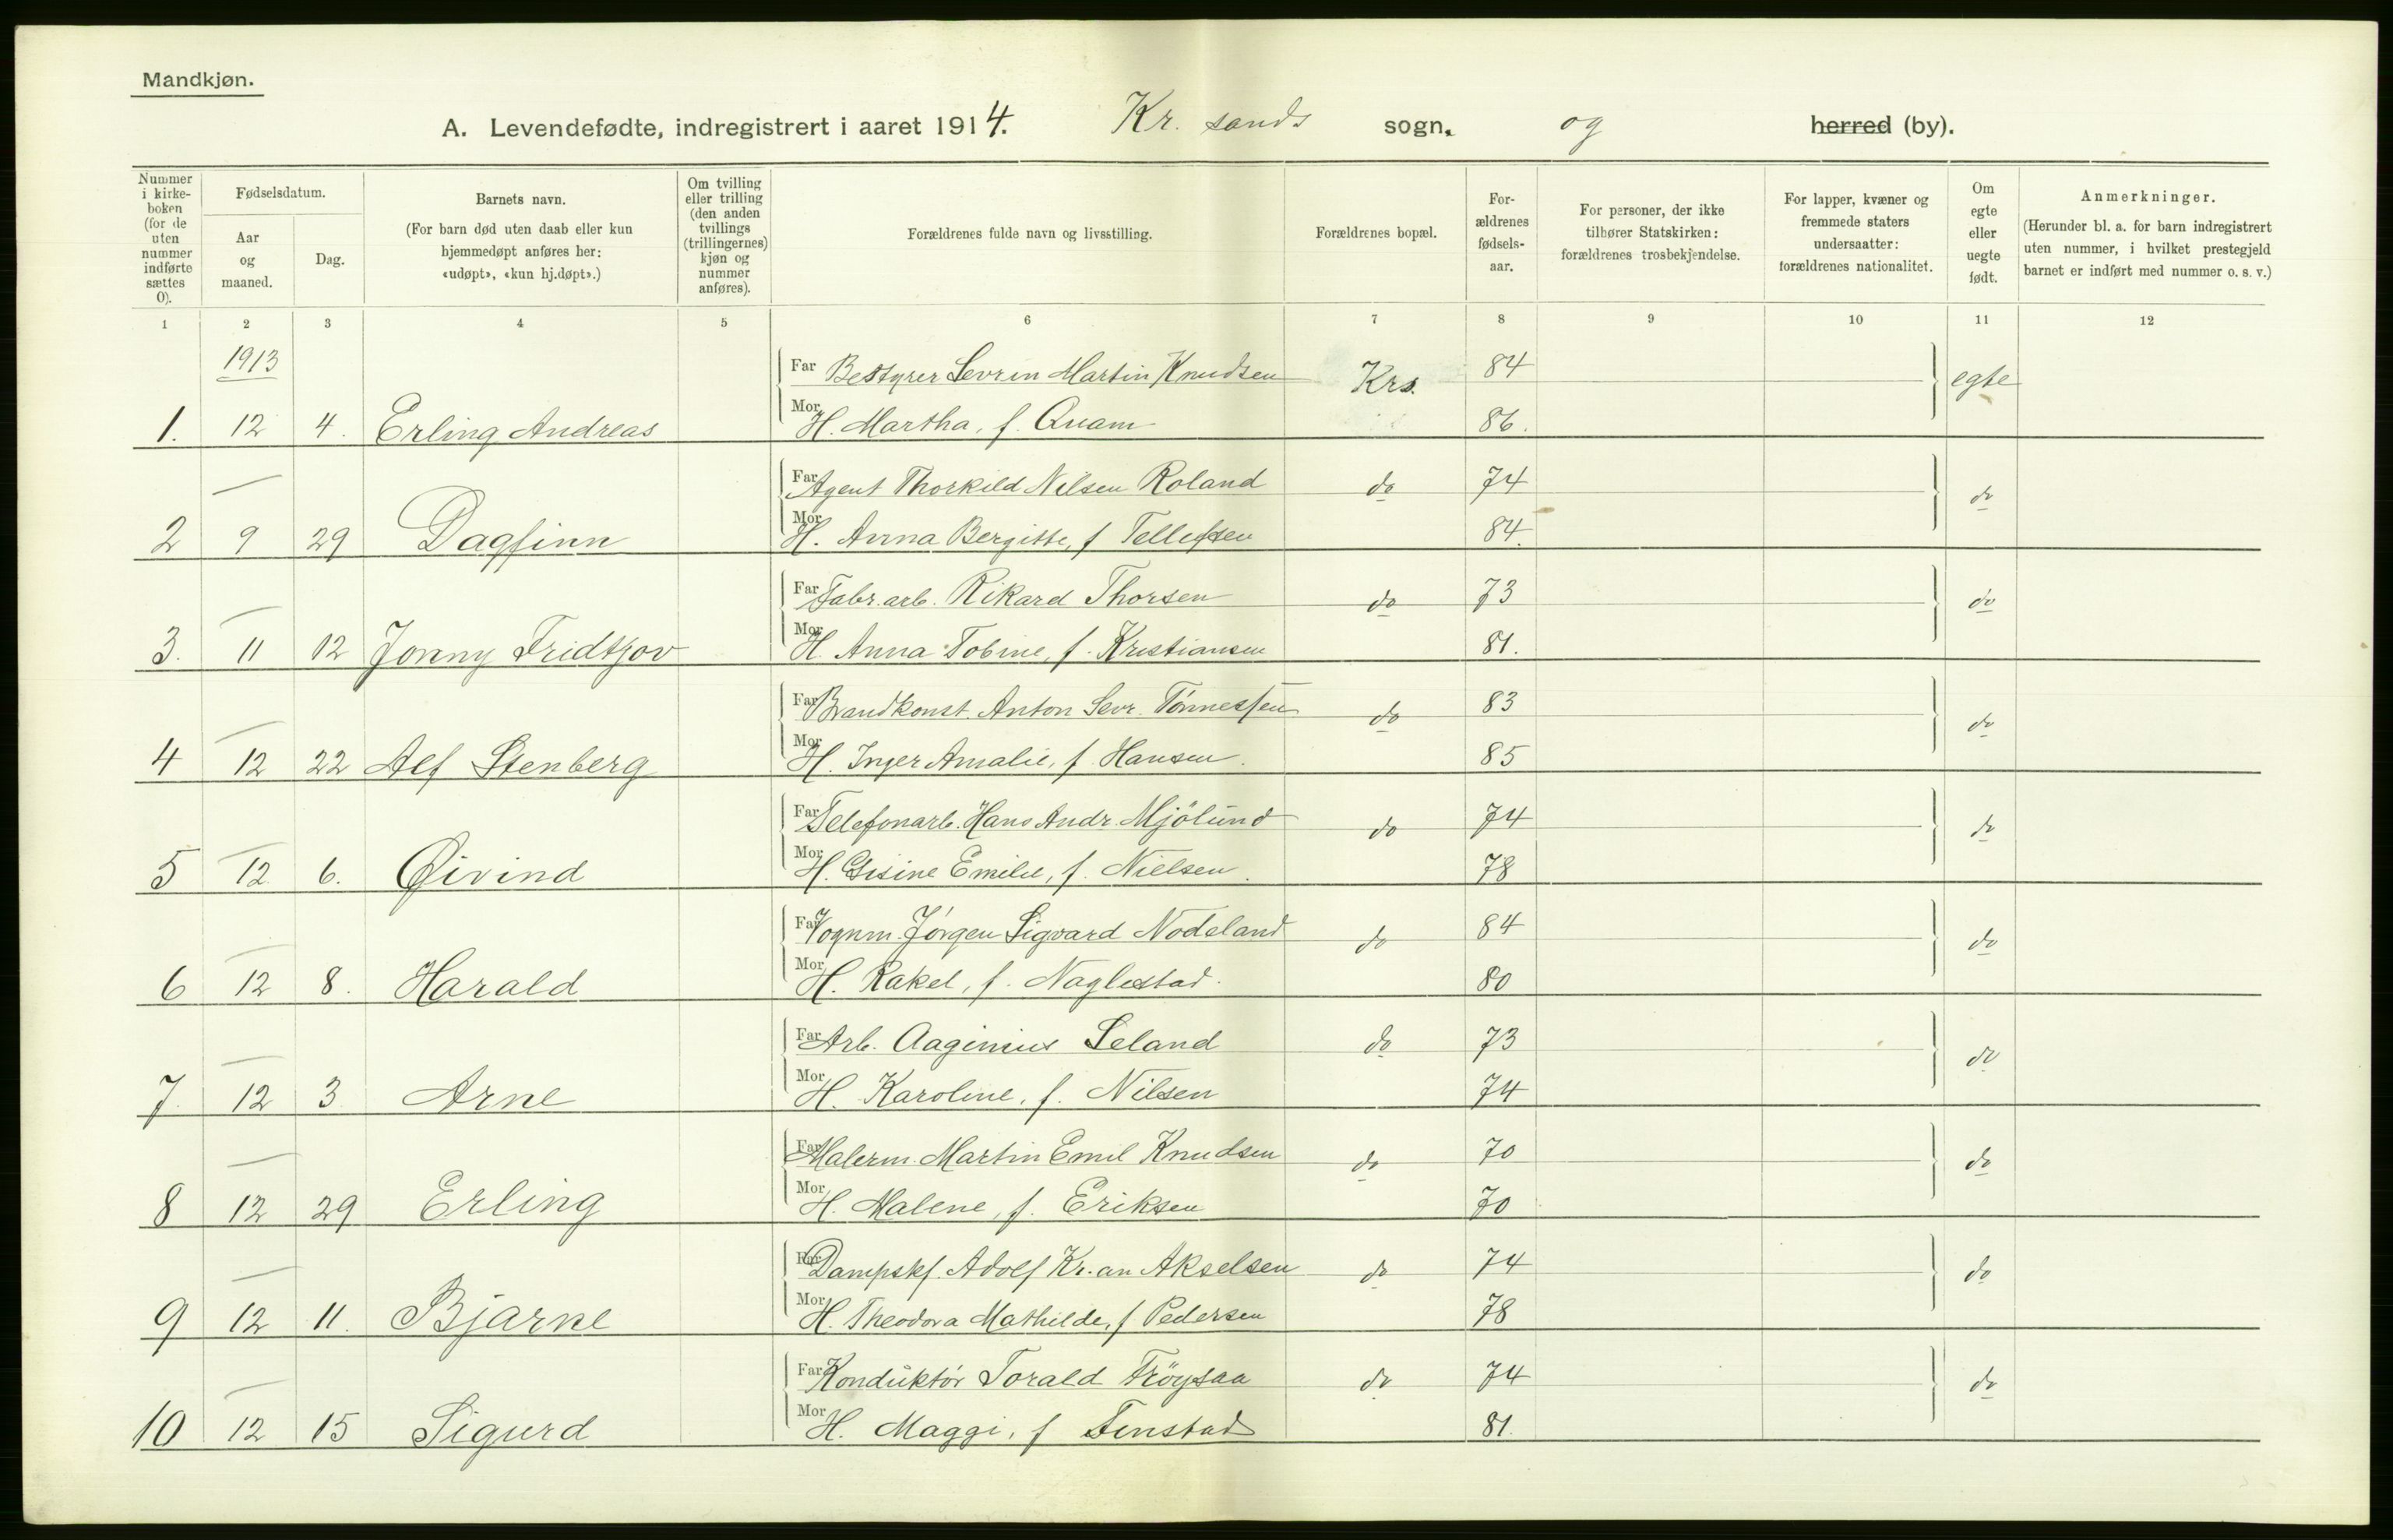 Mandkjøn.
A. Levendefødte, indregistrert i aaret 1914. Kr. sands sogn. og herred (by).
Nummer i kirke-boken (for de uten nummer indførte sættes 0).
Fødselsdatum.
Aar og maaned.
Dag.
Barnets navn.
(For barn død uten daab eller kun hjemmedøpt anføres her: «udøpt», «kun hj.døpt».)
Om tvilling eller trilling (den anden tvillings (trillingernes) kjøn og nummer anføres).
Forældrenes fulde navn og livsstilling.
Forældrenes bopæl.
For-ældrenes fødsels-aar.
For personer, der ikke tilhører Statskirken: forældrenes trosbekjendelse.
For lapper, kvæner og fremmede staters undersaatter: forældrenes nationalitet.
Om egte eller uegte født.
Anmerkninger.
(Herunder bl. a. for barn indregistrert uten nummer, i hvilket prestegjeld barnet er indført med nummer o. s. v.)
1 2 3 4 5 6 7 8 9 10 11 12
1913
Far Bestyrer Sevrin Martin Knudsen Krs. 84 egte
1. 12 4. Erling Andreas Mor H. Martha, f. Quam 86.
— Far Agent Thorkild Nilsen Roland do 74 do
2 9 29 Dagfinn Mor H. Anna Bergitte, f Tellefsen 84.
— Far Fabr.arb. Rikard Thorsen do 73 do
3. 11 12 Jonny Fridtjov Mor H. Anna Tobine, f. Kristiansen 81.
— Far Brandkonst. Anton Sevr. Tönnessen do 83 do
4 12 22 Alf Stenberg Mor H. Inger Amalie, f. Hansen. 85
— Far Telefonarb. Hans Andr. Mjölund do 74 do
5 12 6. Øivind Mor H. Gisine Emilie, f. Nielsen. 78
— Far Vognm. Jörgen Sigvard Nodeland do 84 do
6 12 8. Harald Mor H. Rakel, f. Naglestad. 80
— Far Arb. Aaginius Seland do 73 do
7. 12 3 Arne Mor H. Karoline, f. Nilsen 74
— Far Malerm. Martin Emil Knudsen do 70 do
8 12 29 Erling Mor H. Malene, f. Eriksen 70
— Far Dampskf. Adolf Kr.an Akselsen do 74 do
9 12 11. Bjarne Mor H. Theodora Mathilde, f Pedersen 78
— Far Konduktör Torald Fröysaa do 74 do
10 12 15 Sigurd Mor H. Maggi, f Finstad 81.